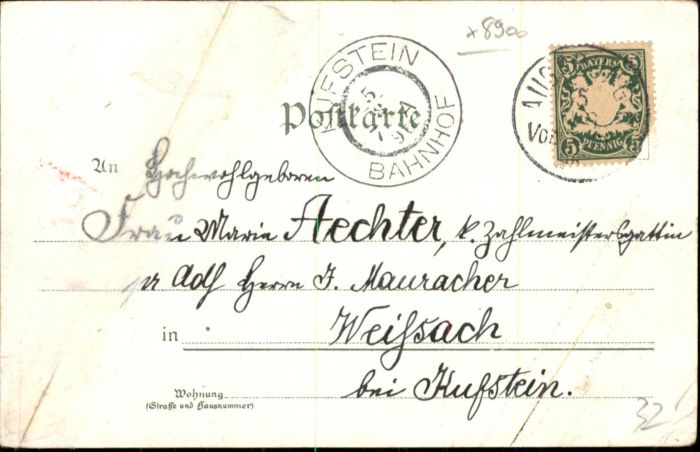 x8900
KUFSTEIN
BAHNHOF
BAYERN
5 5
5 PFENNIG 5
Postkarte
An Hochwohlgeboren
Frau Marie Aechter, k. Zahlmeistersgattin
Adr Herrn J. Mauracher
in Weißsach
bei Kufstein.
Wohnung
(Straße und Hausnummer)
32